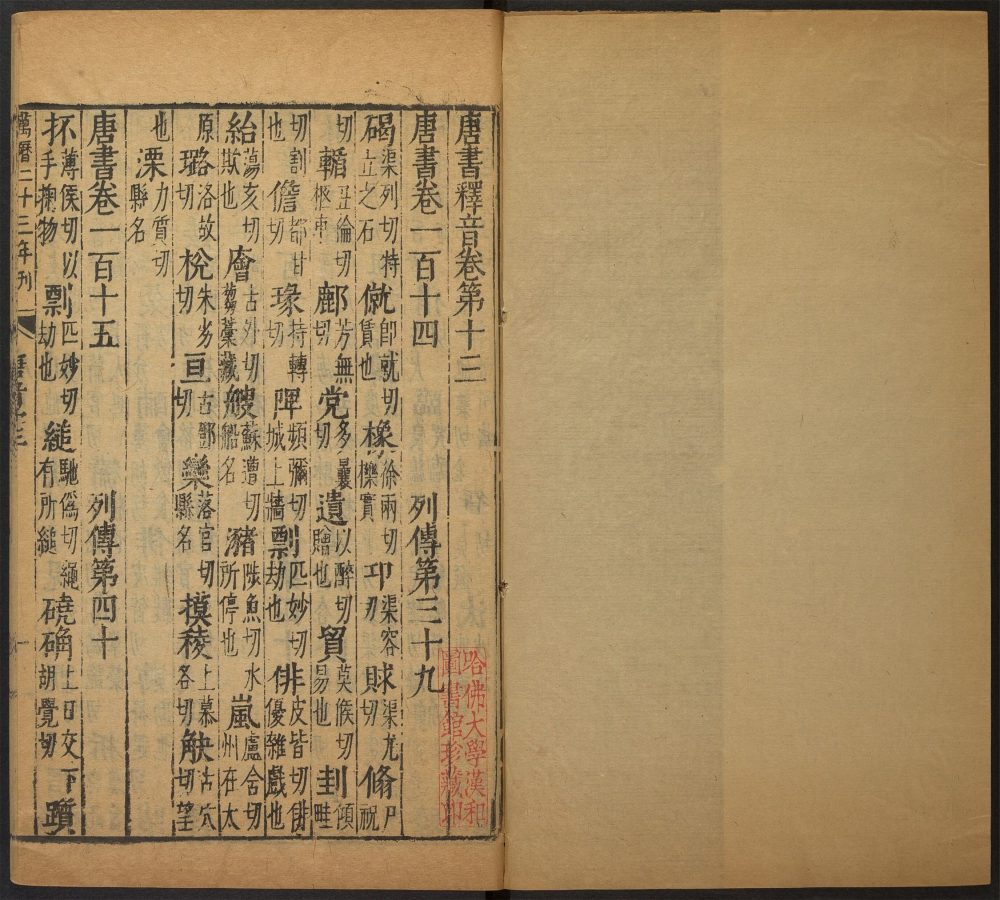 唐書釋音卷第十三
唐書卷一百十四 列傳第三十九
碣渠列切特立之石僦即就切賃也橡徐兩切櫟實卭渠容切賕渠尤切脩尸祝
切輴丑倫切柩車鄜芳無切党多曩切遺以醉切贈也貿莫候切易也刲傾畦
切割也儋都甘切瑑持轉切陴頻彌切城上牆剽匹妙切劫也俳皮皆切俳優雜戲也
紿蕩亥切欺也廥古外切芻藁藏艘蘇遭切船名瀦陟魚切水所停也嵐盧含切州在太
原璐洛故切梲朱劣切亘古鄧切欒落官切縣名摸稜上慕各切觖古穴切望
也溧力質切縣名
唐書卷一百十五 列傳第四十
抔薄侯切以手掬物剽匹妙切劫也縋馳偽切繩有所縋磽确上口交下胡覺切躓
萬曆二十三年刊
哈佛大學漢和圖書館珍藏印